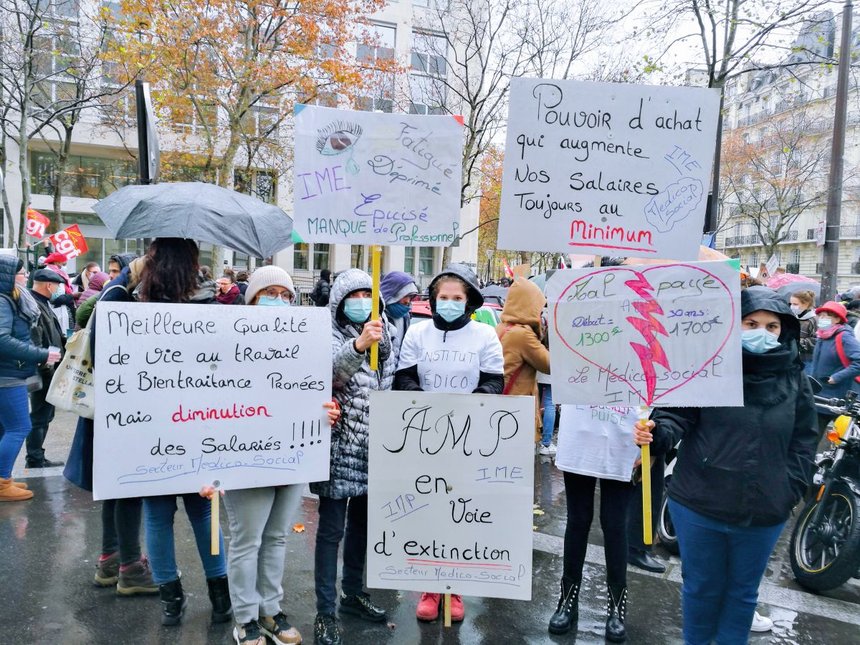 cgt
cgt
Fatigué
Déprimé
IME
Epuisé
MANQUE de Professionnel
Pouvoir d'achat
qui augmente
Nos Salaires
Toujours au
Minimum
IME
Médico
Social
Meilleure Qualité
de vie au travail
et Bientraitance Pronées
Mais diminution
des Salariés !!!!
Secteur Médico-Social
INSTITUT
MÉDICO
AMP
IME
en
IMP
Voie
d'extinction
Secteur Médico-Social
Mal payée
Début =
1300€
30 ans:
1700€
Le Médico-social
IME
EPUISÉ